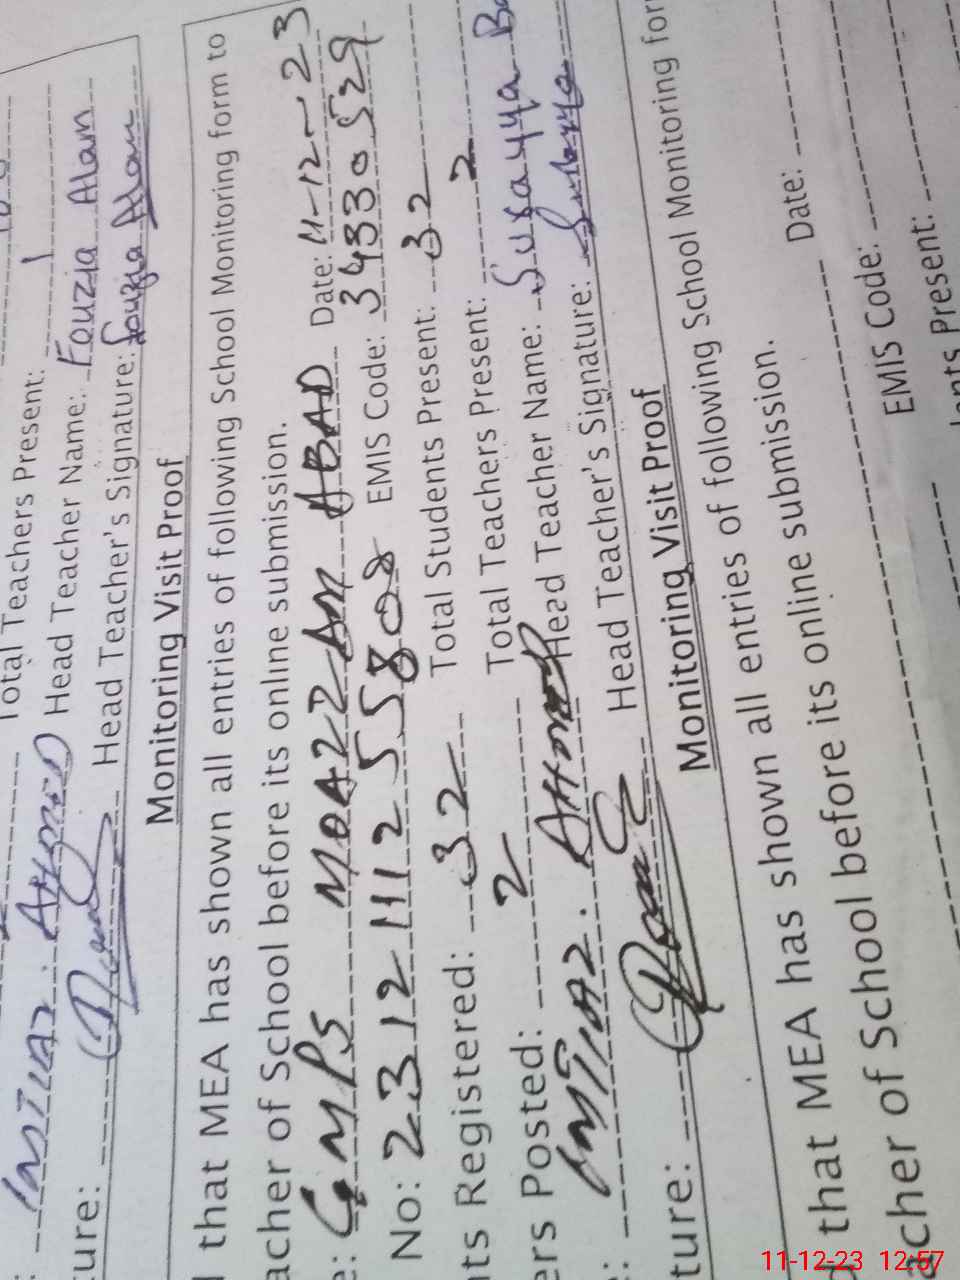 Total Teachers Present: 1
Head Teacher Name: Fouzia Alam
IMTIAZ. AHMED
ture: Head Teacher's Signature: Fouzia Alam
Monitoring Visit Proof
that MEA has shown all entries of following School Monitoring form to
acher of School before its online submission.
e: GMPS MOAZZAM ABAD Date: 11-12-23
No: 23121125580 EMIS Code: 34330529
nts Registered: 32 Total Students Present: 32
ers Posted: 2 Total Teachers Present: 2
: IMTIAZ. AHMED Head Teacher Name: Surayya
ture: Head Teacher's Signature: Surayya
Monitoring Visit Proof
that MEA has shown all entries of following School Monitoring for
acher of School before its online submission.
Date:
EMIS Code:
ents Present:
11-12-23 12:57